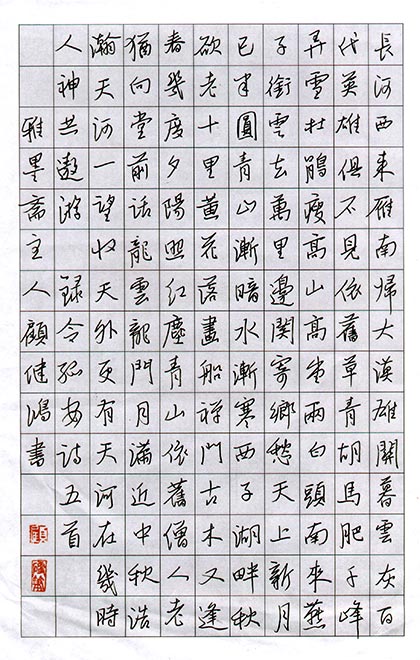 長河西來雁南歸大漠雄關暮雲灰百
代英雄俱不見依舊草青胡馬肥千峰
尋雪杜鵑瘦高山高堂兩白頭南來燕
子銜雲去萬里邊關寄鄉愁天上新月
已半圓青山漸暗水漸寒西子湖畔秋
欲老十里黃花落畫船禪門古木又逢
春幾度夕陽照紅塵青山依舊僧人老
猶向堂前話龍雲龍門月滿近中秋浩
瀚天河一望收天外更有天河在幾時
人神共遨游 錄令狐安詩五首
雅墨斋主人顧健鴻書
顧